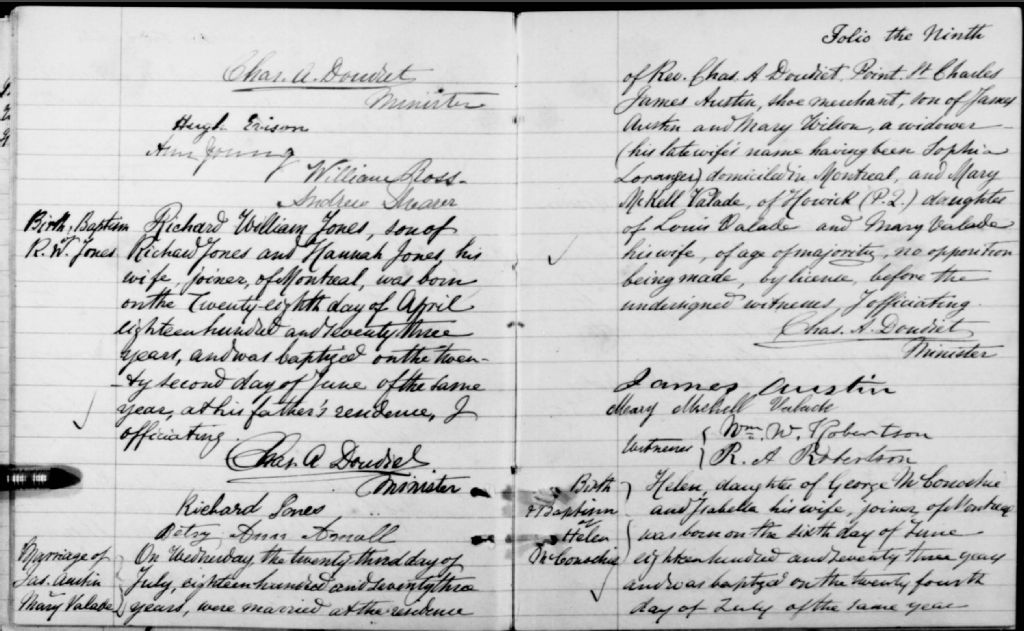 Chas. A. Doudiet
Minister
Hugh Evison
Ann Young
William Ross
Andrew Shearer
Birth, Baptism
of
R. W. Jones
Richard William Jones, son of
Richard Jones and Hannah Jones, his
wife, joiner, of Montreal, was born
on the Twenty-eighth day of April
eighteen hundred and seventy three
years, and was baptized on the twen-
-ty second day of June of the same
year, at his father's residence, I
officiating.
Chas. A. Doudiet
Minister
Richard Jones
Betsy Ann
Marriage of
Jas. Austin
Mary Valade
On Wednesday, the twenty third day of
July, eighteen hundred and seventy three
years, were married at the residence
Folio the Ninth
of Rev. Chas. A Doudiet Point St Charles
James Austin, shoe merchant, son of James
Austin and Mary Wilson, a widower
(his late wife's name having been Sophia
Loranger) domiciled in Montreal, and Mary
McKell Valade, of Howick (P.Q.) daughter
of Louis Valade and Mary Valade
his wife, of age of majority, no opposition
being made, by licence, before the
undersigned witnesses, I officiating.
Chas. A. Doudiet
Minister
James Austin
Mary Mickell Valade
Witnesses
Wm. W. Robertson
R. A Robertson
Birth
& Baptism
of
Helen
McConochie
Helen, daughter of George McConochie
and Isabella his wife, joiner, of Montreal
was born on the sixth day of June
eighteen hundred and seventy three years
and was baptized on the twenty fourth
day of July of the same year